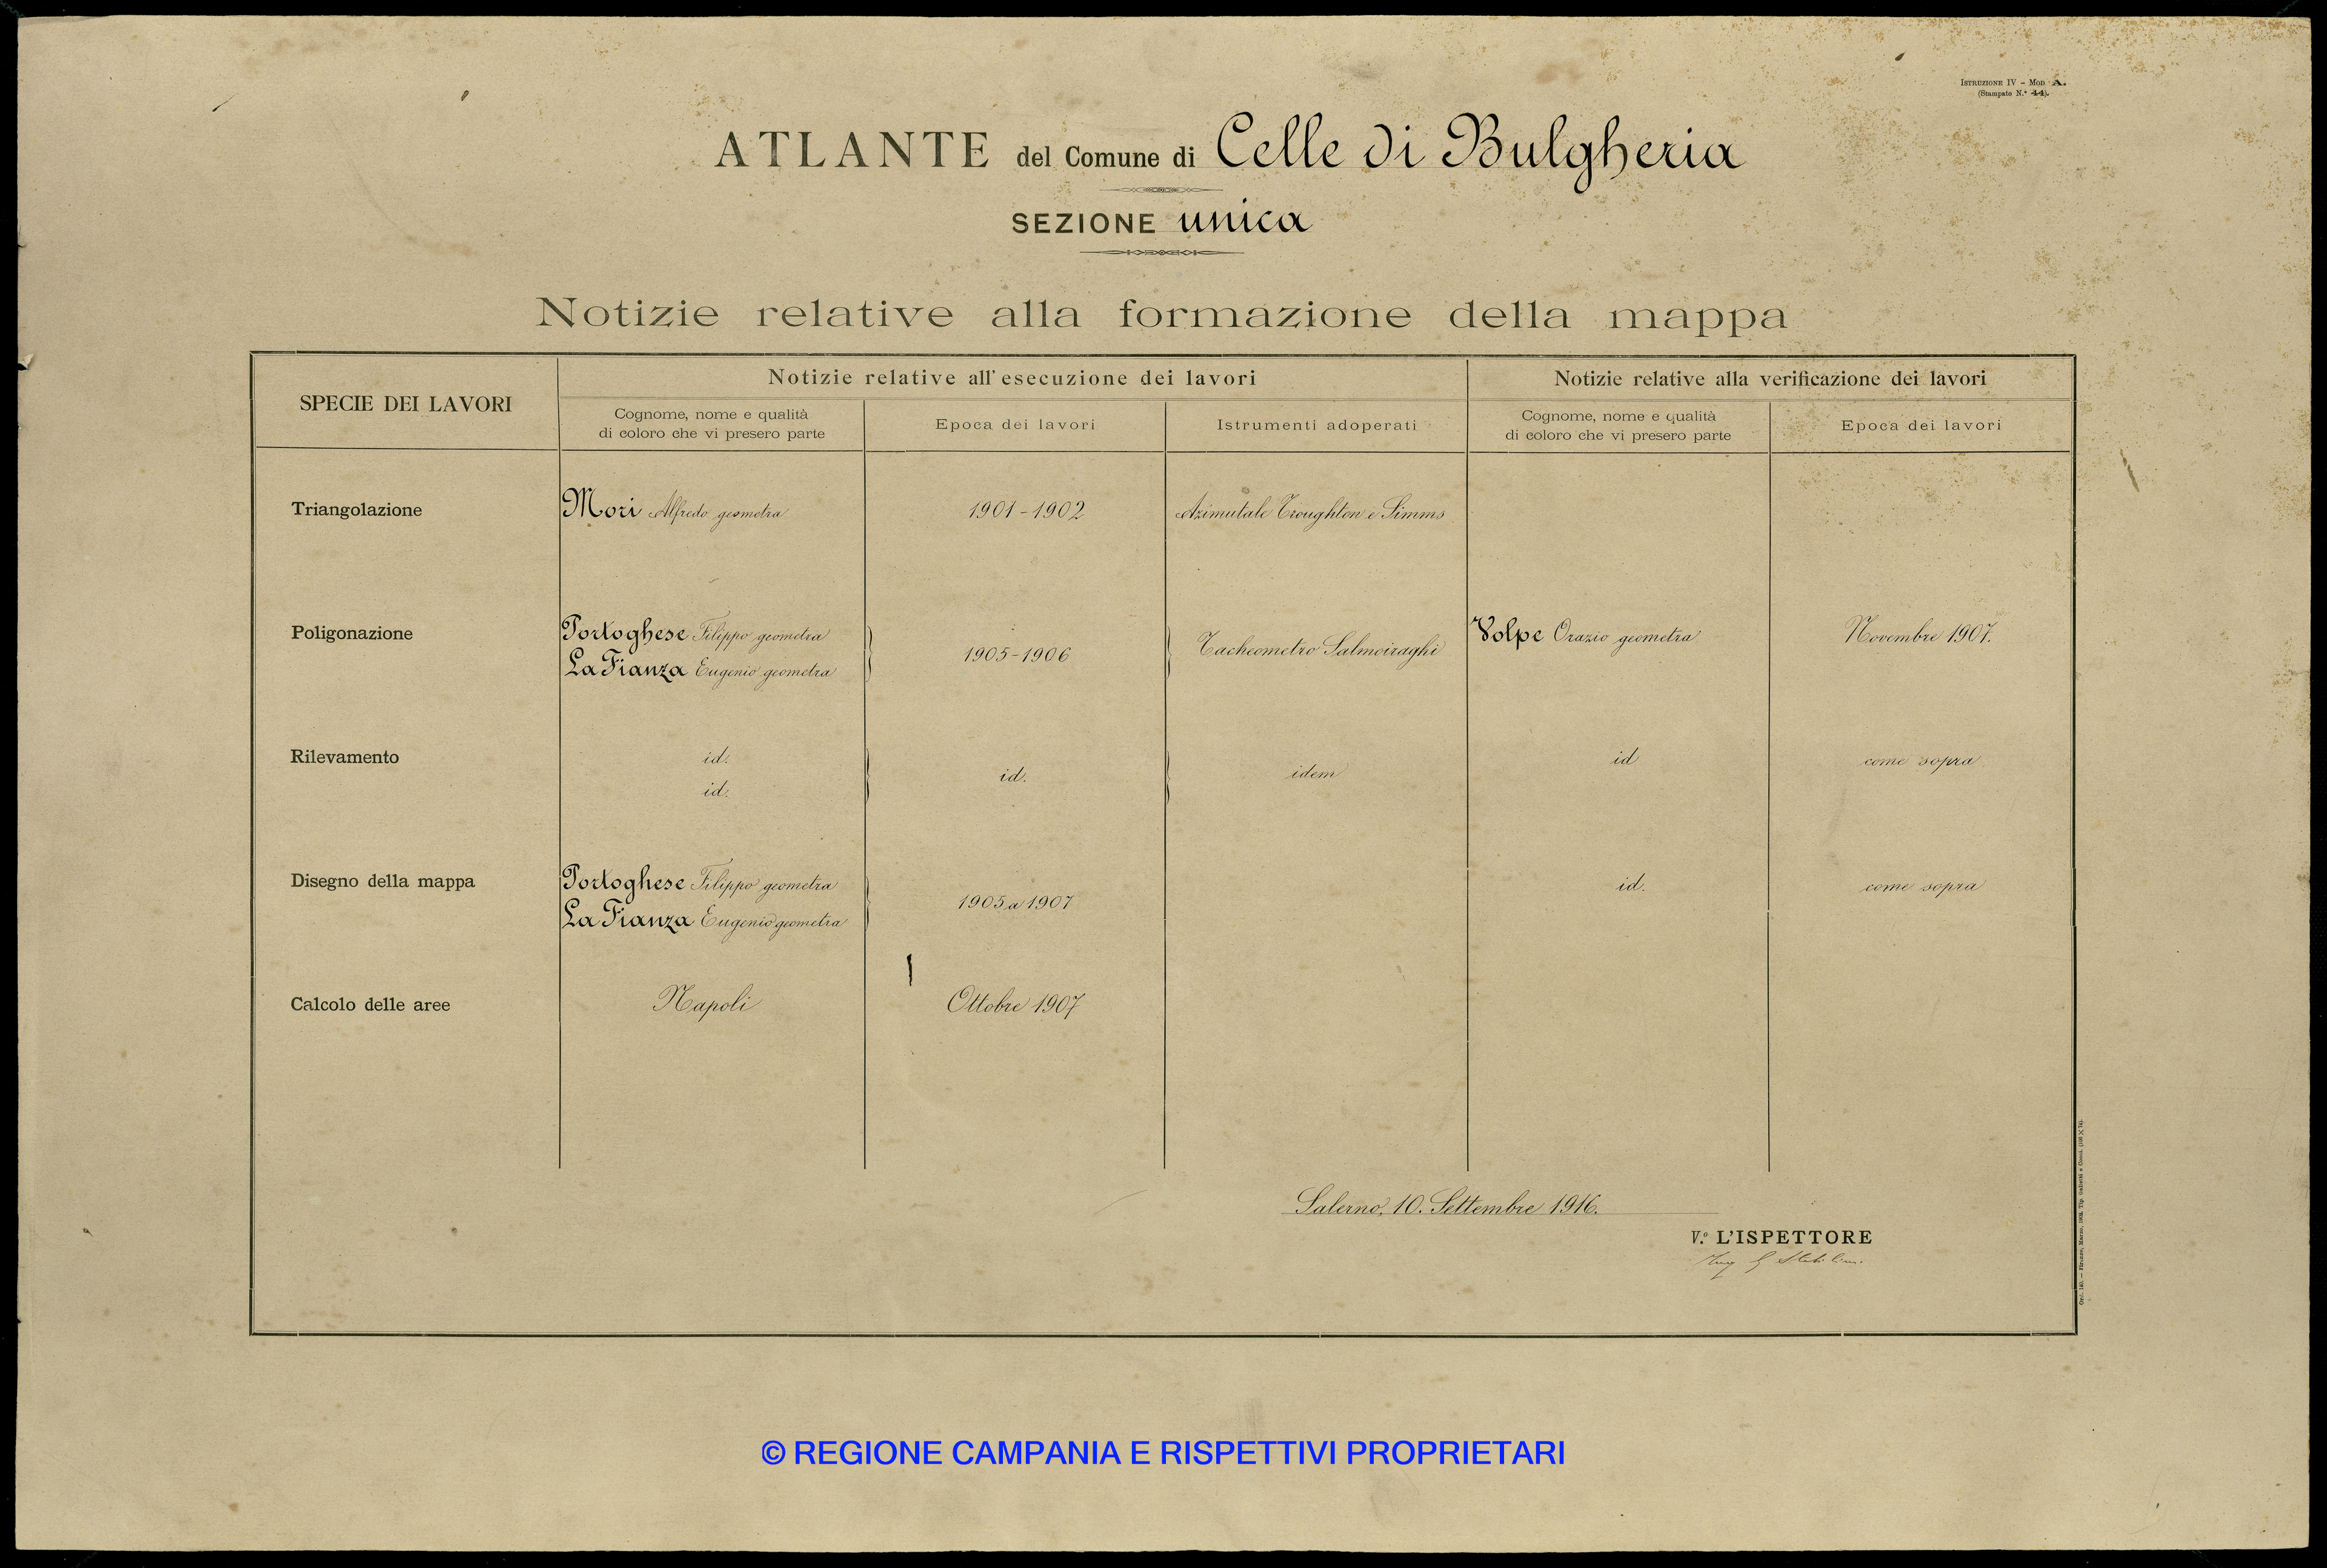 ISTRUZIONE IV - MOD. A.
(Stampato N.º 44).
ATLANTE del Comune di Celle di Bulgheria
SEZIONE unica
Notizie relative alla formazione della mappa
SPECIE DEI LAVORI
Notizie relative all'esecuzione dei lavori
Notizie relative alla verificazione dei lavori
Cognome, nome e qualità
di coloro che vi presero parte
Epoca dei lavori
Istrumenti adoperati
Cognome, nome e qualità
di coloro che vi presero parte
Epoca dei lavori
Triangolazione
Mori Alfredo geometra
1901-1902
Azimutale Troughton e Simms
Poligonazione
Portoghese Filippo geometra
La Fianza Eugenio geometra
1905-1906
Tacheometro Salmoiraghi
Volpe Orazio geometra
Novembre 1907.
Rilevamento
id.
id.
id.
idem
id
come sopra
Disegno della mappa
Portoghese Filippo geometra
La Fianza Eugenio geometra
1905 a 1907
id.
come sopra
Calcolo delle aree
Napoli
Ottobre 1907
Salerno, 10. Settembre 1916.
V.º L'ISPETTORE
© REGIONE CAMPANIA E RISPETTIVI PROPRIETARI